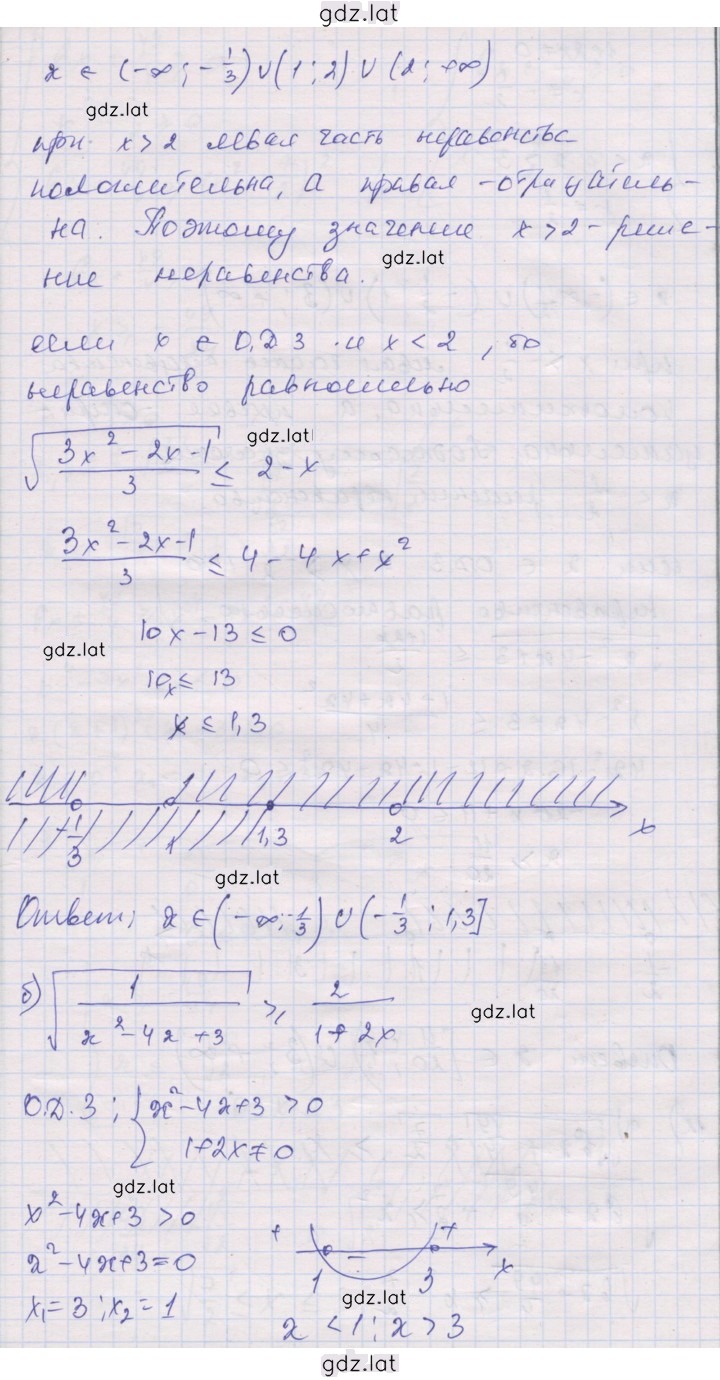 gdz.lat
x ∈ (-∞; -1/3) ∪ (1; 2) ∪ (2; +∞)
gdz.lat
при x > 2 левая часть неравенства
положительна, а правая - отрицатель-
на. Поэтому значение x > 2 - реше-
gdz.lat
ние неравенства.
если x ∈ О.Д.З. и x < 2, то
неравенство равносильно
gdz.lat
√((3x² - 2x - 1)/3) ≤ 2 - x
(3x² - 2x - 1)/3 ≤ 4 - 4x + x²
10x - 13 ≤ 0
gdz.lat
10x ≤ 13
x ≤ 1,3
-1/3 1 1,3 2 x
gdz.lat
Ответ; x ∈ (-∞; -1/3) ∪ (-1/3; 1,3]
б) √(1/(x² - 4x + 3)) ≥ 2/(1 + 2x)
gdz.lat
О.Д.З; { x² - 4x + 3 > 0
1 + 2x ≠ 0
gdz.lat
x² - 4x + 3 > 0
x² - 4x + 3 = 0
+ - + x
1 3
x₁ = 3; x₂ = 1
gdz.lat
x < 1; x > 3
gdz.lat